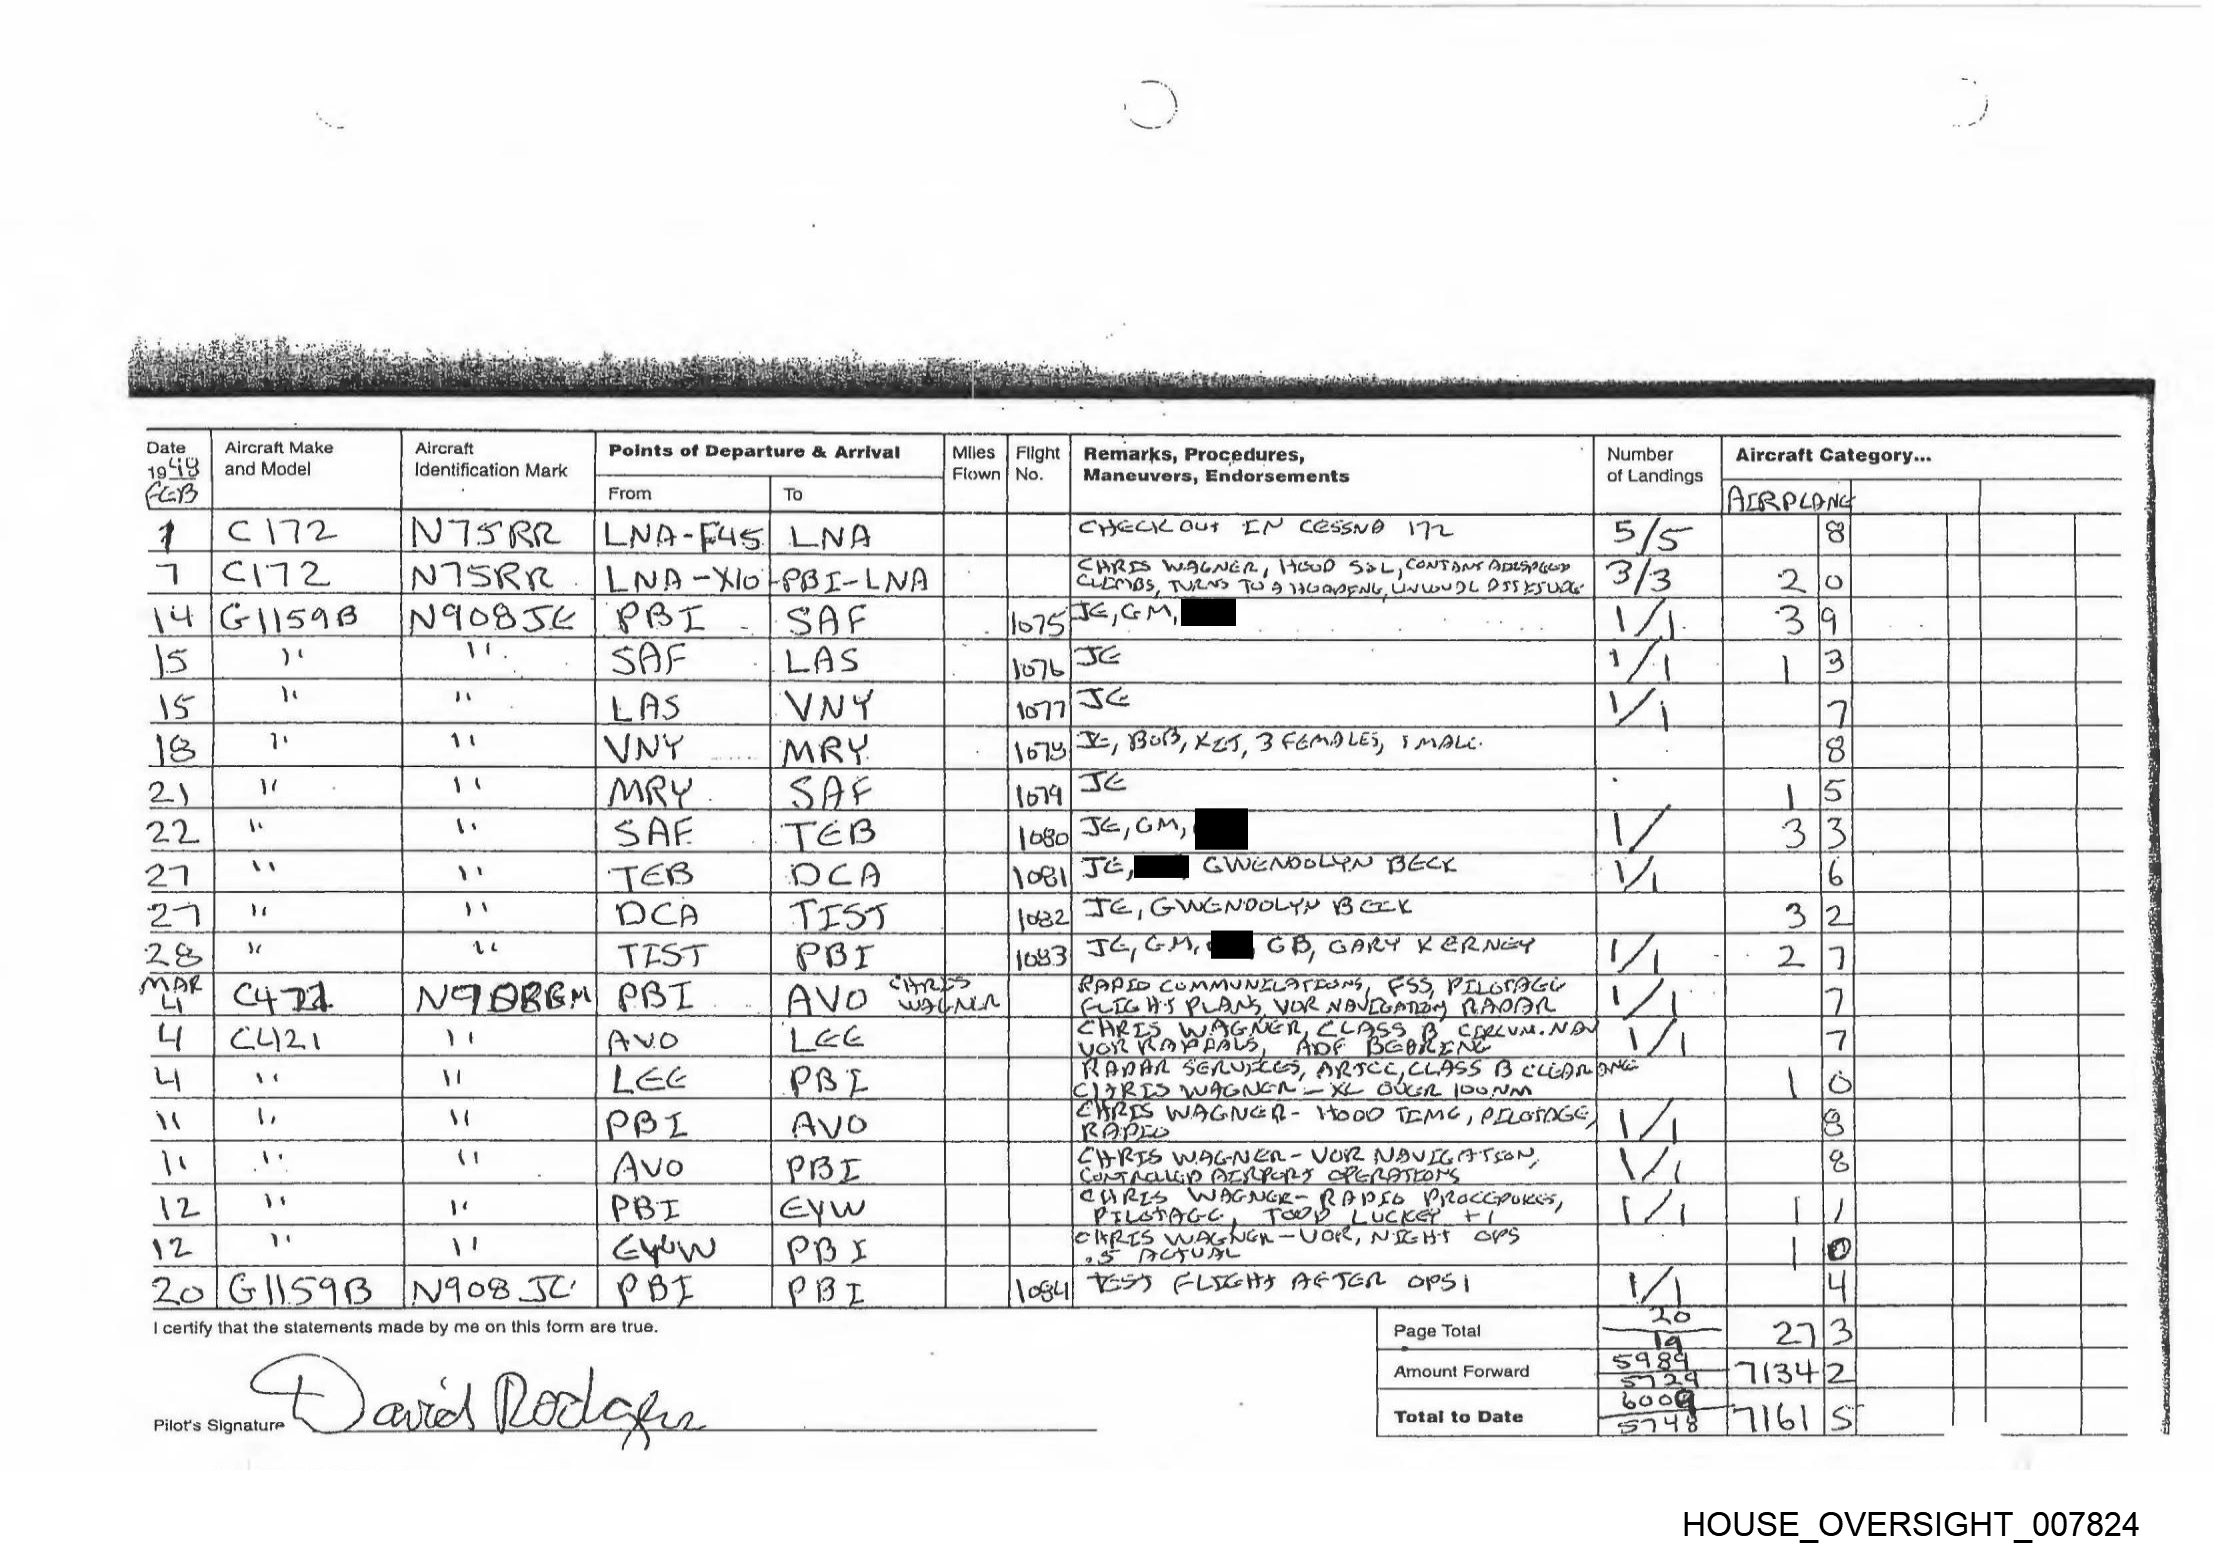 Date Aircraft Make Aircraft Points of Departure & Arrival Miles Flight Remarks, Procedures, Number Aircraft Category...
1998 and Model Identification Mark Flown No. Maneuvers, Endorsements of Landings
FEB From To AIRPLANE
1 C172 N75RR LNA-F45 LNA CHECK OUT IN CESSNA 172 5/5 8
7 C172 N75RR LNA-X10-PBI-LNA CHRIS WAGNER, HOOD S&L, CONTANT AIRSPEED 3/3 2 0
CLIMBS, TURNS TO A HEADING, UNUSUAL ATTITUDE
14 G1159B N908JE PBI SAF 1075 JE, GM, 1/1 3 9
15 " " SAF LAS 1076 JE 1/1 1 3
15 " " LAS VNY 1077 JE 1/1 7
18 " " VNY MRY 1078 JE, BOB, KIT, 3 FEMALES, 1 MALE 8
21 " " MRY SAF 1079 JE 1 5
22 " " SAF TEB 1080 JE, GM, 1/ 3 3
27 " " TEB DCA 1081 JE, GWENDOLYN BECK 1/1 6
27 " " DCA TIST 1082 JE, GWENDOLYN BECK 3 2
28 " " TIST PBI 1083 JE, GM, GB, GARY KERNEY 1/1 2 7
MAR CHRIS RADIO COMMUNICATIONS, FSS, PILOTAGE
4 C421 N908GM PBI AVO WAGNER FLIGHT PLANS, VOR NAVIGATION, RADAR 1/1 7
4 C421 " AVO LEE CHRIS WAGNER, CLASS B CIRCUM. NAV 1/1 7
VOR RADIALS, ADF BEARING
4 " " LEE PBI RADAR SERVICES, ARTCC, CLASS B CLEARANCE 1 0
CHRIS WAGNER - XC OVER 100NM
11 " " PBI AVO CHRIS WAGNER - HOOD TIME, PILOTAGE, 1/1 8
RADIO
11 " " AVO PBI CHRIS WAGNER - VOR NAVIGATION, 1/1 8
CONTROLLED AIRPORT OPERATIONS
12 " " PBI EYW CHRIS WAGNER - RADIO PROCEDURES, 1/1 1 1
PILOTAGE, TODD LUCKEY +1
12 " " EYW PBI CHRIS WAGNER - VOR, NIGHT OPS 1 0
.5 ACTUAL
20 G1159B N908JE PBI PBI 1084 TEST FLIGHT AFTER OPS1 1/1 4
I certify that the statements made by me on this form are true.
Page Total 20/19 27 3
Amount Forward 5989/5729 7134 2
Total to Date 6009/5748 7161 5
Pilot's Signature David Rodgers
HOUSE_OVERSIGHT_007824